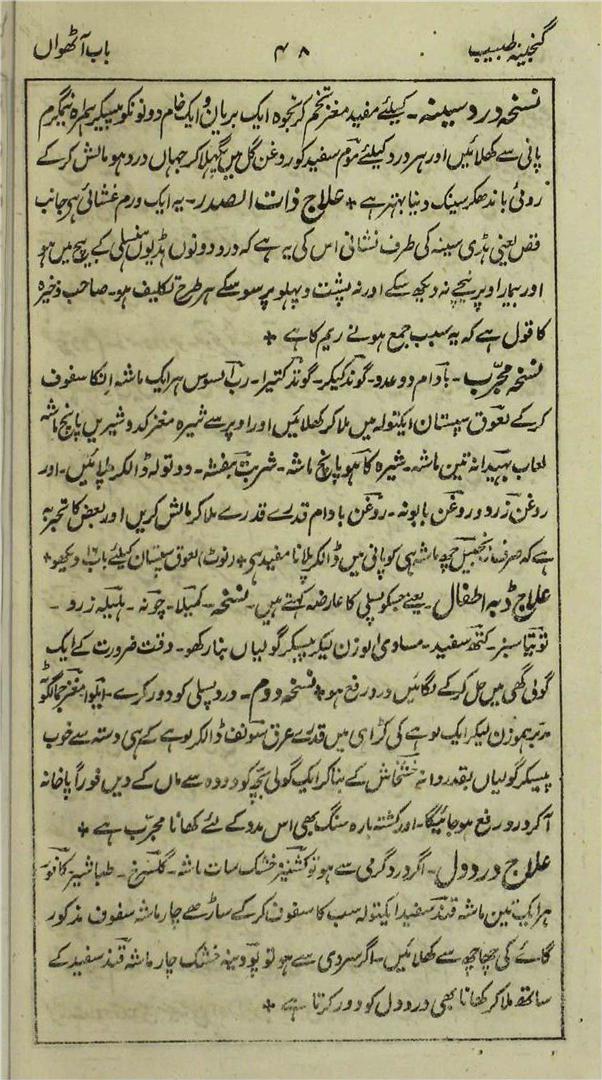 گنجینہ طبیب ۴۸ باب آٹھواں
نسخہ درد سینہ۔ کیلئے مفید مغز تخم کرنجوہ ایک بریان و ایک خام دونونکو پیسکر ہمراہ نیگرم
پانی سے کھلائیں اور ہر درد کیلئے موم سفید کو روغن گل میں پگھلا کر جہاں درد ہو مالش کر کے
روئی باندھکر سینک دنیا بہتر ہے + علاج ذات الصدر۔ یہ ایک ورم غشائی ہی جانب
قص یعنی ہڈی سینہ کی طرف نشانی اس کی یہ ہے کہ درد دونوں ہڈیوں ہنسلی کے بیچ میں ہو
اور بیمار اوپر نیچے نہ دیکھ سکے اور نہ پشت و پہلو پر سو سکے ہر طرح تکلیف ہو۔ صاحب ذخیرہ
کا قول ہے کہ یہ سبب جمع ہونے ریم کا ہے +
نسخہ مجرّب۔ بادام دو عدد۔ گوند کیکر۔ گوند کتیرا۔ رب السوس ہر ایک ماشہ اِنکا سفوف
کر کے لعوق سپستان ایکتولہ میں ملا کر کھلائیں اور اوپر سے شیرہ مغز کدو شیریں پانچ ماشہ
لعاب بہیدانہ تین ماشہ۔ شیرہ کاہو پانچ ماشہ۔ شربت بنفشہ۔ دو تولہ ڈالکر پلائیں۔ اور
روغن زرد و روغن بابونہ۔ روغن بادام قدرے قدرے ملا کر مالش کریں اور بعض کا تجربہ
ہے کہ صرف زنجبیل چھ ماشہ ہی کو پانی میں ڈالکر پلانا مفید ہی + (نوٹ) لعوق سپستان کیلئے باب ۱۶ دیکھو +
علاج ڈبہ اطفال۔ یعنے جسکو پسلی کا عارضہ کہتے ہیں۔ نسخہ۔ کمیلا۔ چونہ۔ ہلیلہ زرد۔
توتیا سبز۔ کتھہ سفید۔ مساوی الوزن لیکر پیسکر گولیاں بنا رکھو۔ وقت ضرورت کے ایک
گولی گھی میں حل کر کے لگائیں درد رفع ہو + نسخہ دوم۔ درد پسلی کو دور کرے۔ ایلوا مغز جمالگوٹہ
مدبر ہموزن لیکر ایک لوہے کی کڑاہی میں قدرے عرق سونف ڈالکر لوہے کے ہی دستہ سے خوب
پیسکر گولیاں بقدر دانہ خشخاش کے بنا کر ایک گولی بچّہ کو دودہ سے ماں کے دیں فوراً پاخانہ
آ کر درد رفع ہو جائیگا۔ اور کشتہ بارہ سنگ بھی اس درد کے لئے کھانا مجرّب ہے +
علاج درد دل۔ اگر درد گرمی سے ہو تو کشنیز خشک سات ماشہ۔ گلسرخ۔ طباشیر کافور
ہر ایک تین ماشہ قند سفید ایکتولہ سب کا سفوف کر کے ساڑھے چار ماشہ سفوف مذکور
گائے کی چھاچھ سے کھلائیں۔ اگر سردی سے ہو تو پودینہ خشک چار ماشہ قند سفید کے
ساتھ ملا کر کھانا بھی درد دل کو دور کرتا ہے +